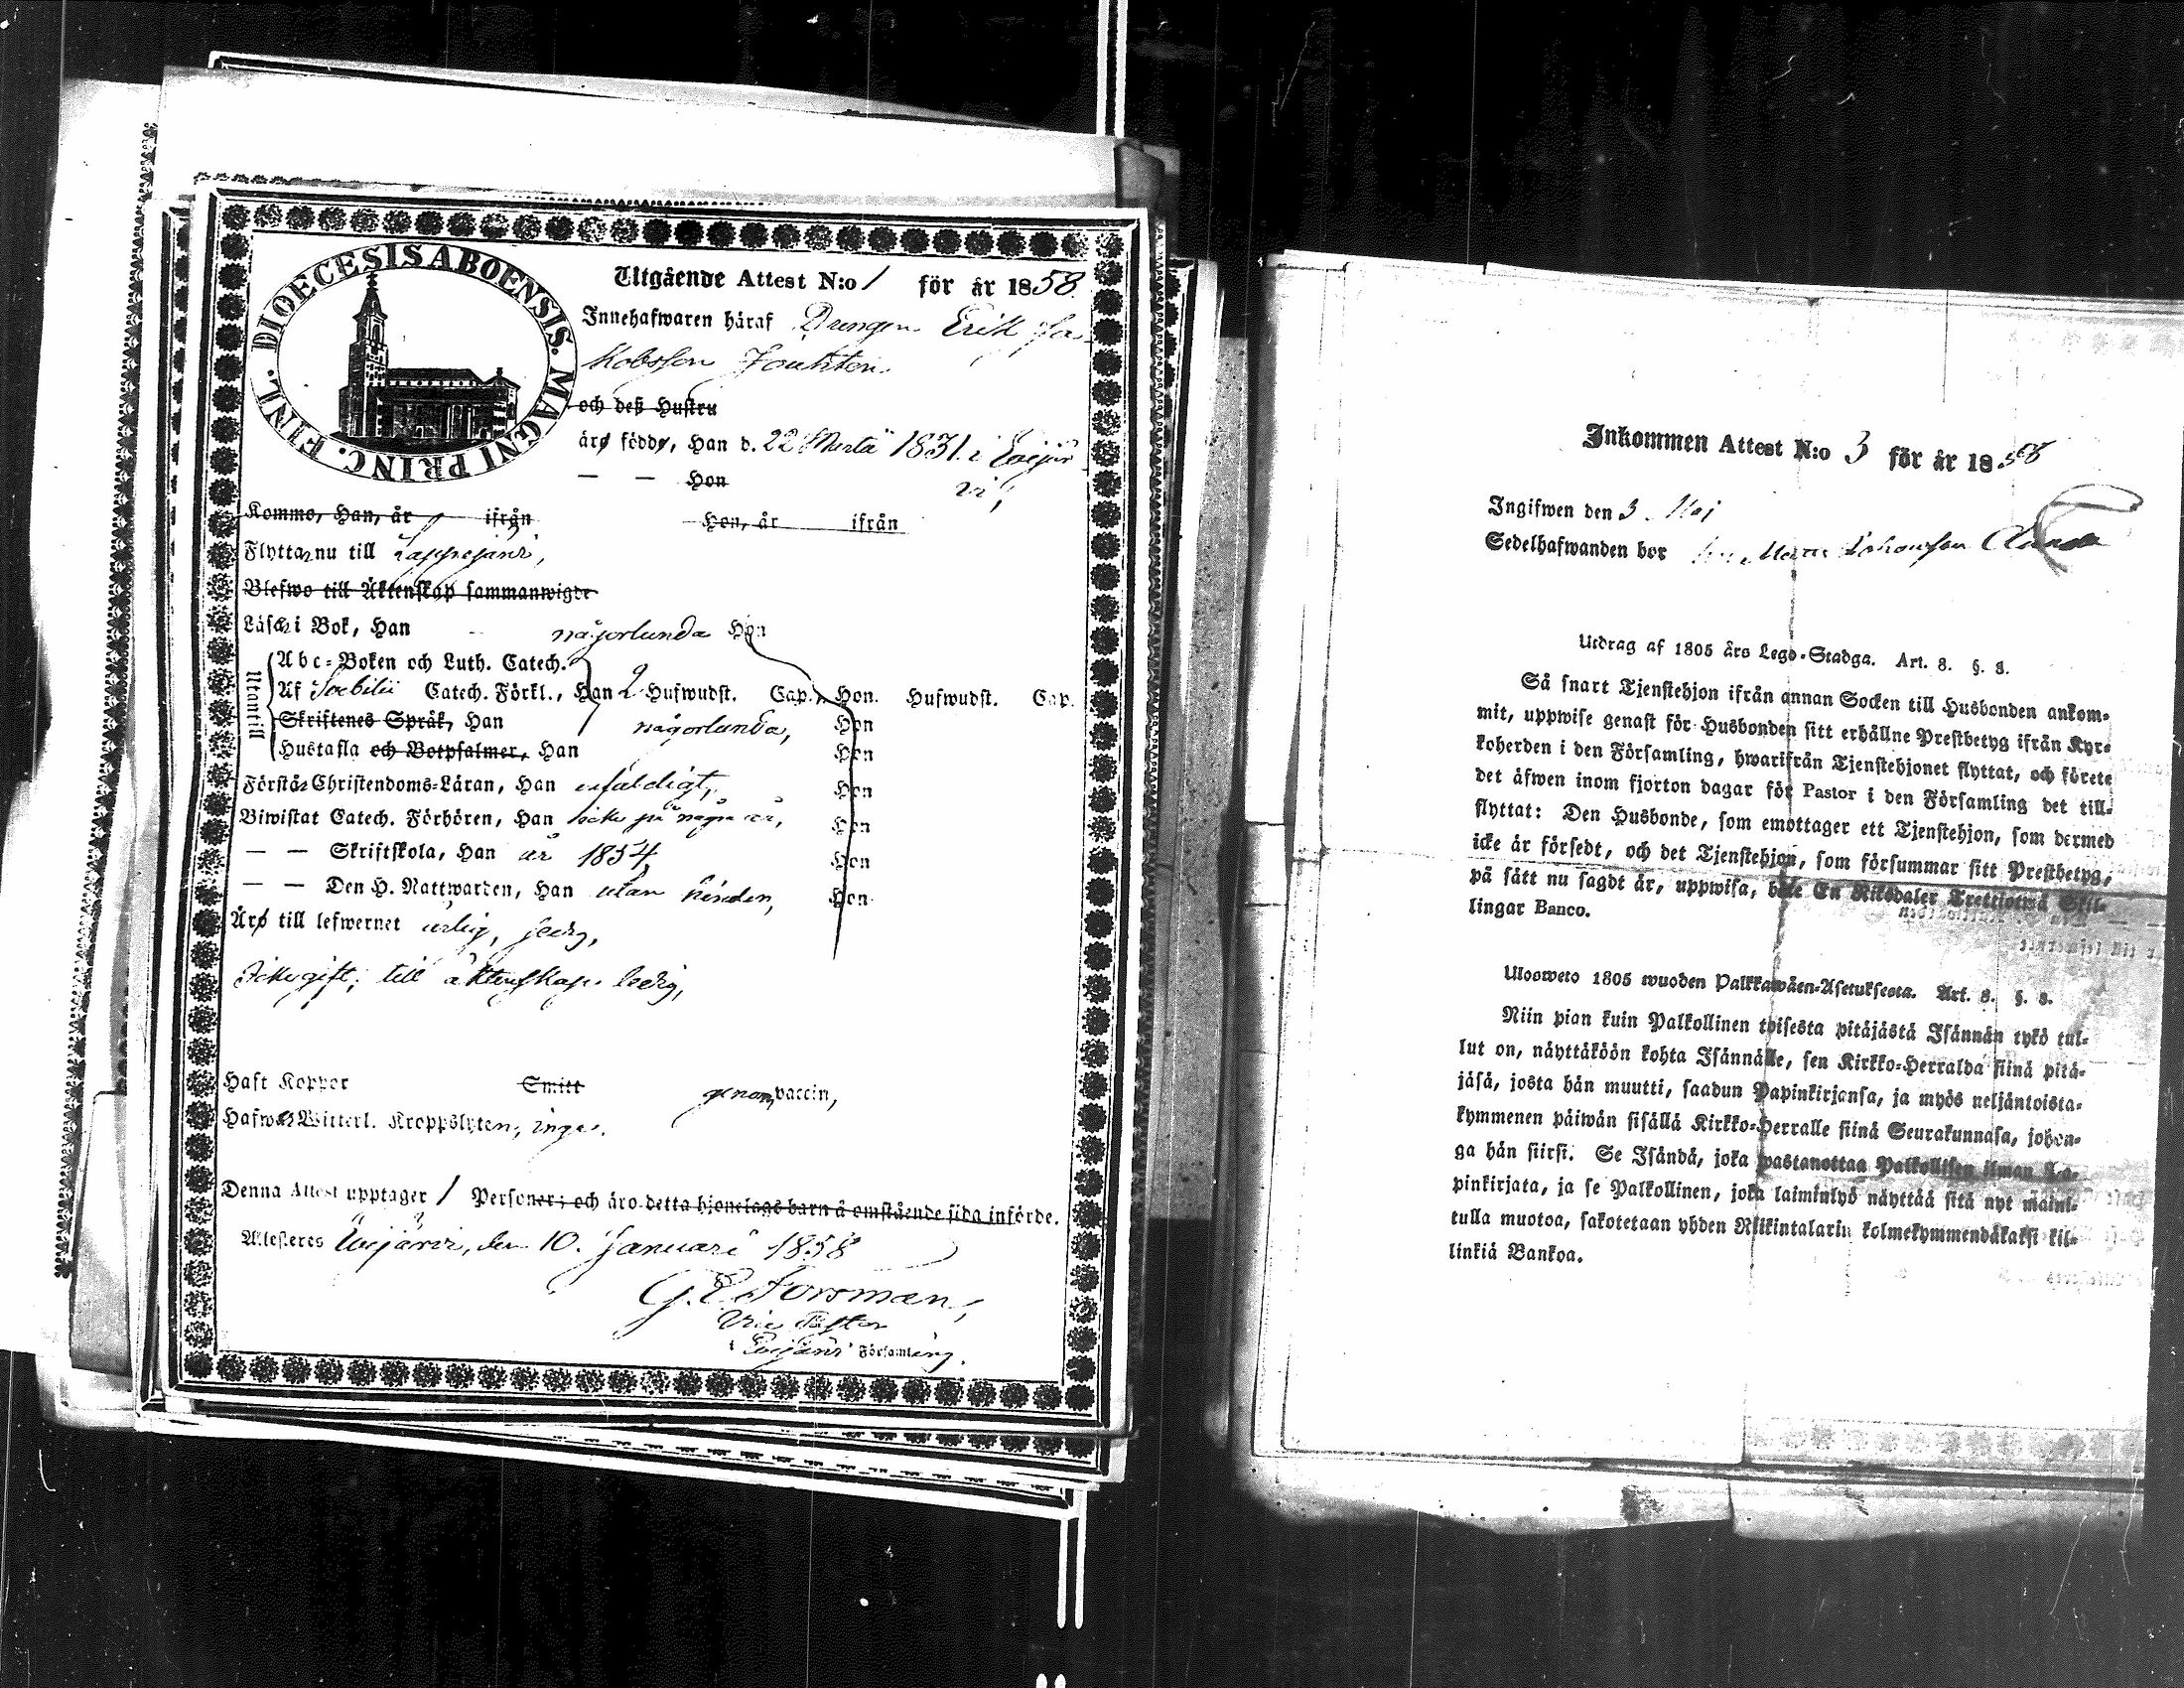 DIOECESIS ABOENSIS. MAGNI PRINC. FINL.
Utgående Attest N:o 1 för år 1858.
Innehafwaren häraf Drengen Erik Ja-
kobsson Joukton.
och deß Hustru
äro födde, Han d. 22 Martii 1831. i
— — Hon
Kommo, Han, år ifrån Hon, år ifrån
Flytta nu till Lappajärvi,
Blefwo till Äktenskap sammanwigde
Läsa i Bok, Han någorlunda Hon
Utantill
Abc-Boken och Luth. Catech.
Af Sveblii Catech. Förkl., Han 2 Hufwudst. Cap., Hon. Hufwudst. Cap.
Skriftenes Språk, Han någorlunda, Hon
Hustafla och Botpsalmer, Han Hon
Förstå Christendoms-Läran, Han enfaldigt, Hon
Biwistat Catech. Förhören, Han icke på några år, Hon
— — Skriftskola, Han år 1854, Hon
— — Den H. Nattwarden, Han utan hinder, Hon
Äro till lefwernet ärlig,
Icke gift; till äktenskap ledig,
Haft Koppor Smitt genom vaccin,
Hafwa Witterl. Kroppslyten, inga.
Denna Attest upptager 1 Personer; och äro detta hjonelags barn å omstående sida införde.
Attesteras Evijärvi, den 10. Januari 1858
G. E. Forsman,
Vice Pastor
i Evijärvi Församling.
Inkommen Attest N:o 3 för år 1858
Ingifwen den 3 Maj
Sedelhafwanden bor
Utdrag af 1805 års Lego-Stadga. Art. 8. §. 8.
Så snart Tjenstehjon ifrån annan Socken till Husbonden ankom-
mit, uppwise genast för Husbonden sitt erhållne Prestbetyg ifrån Kyr-
koherden i den Församling, hwarifrån Tjenstehjonet flyttat, och förete
det äfwen inom fjorton dagar för Pastor i den Församling det till-
flyttat: Den Husbonde, som emottager ett Tjenstehjon, som dermed
icke är försedt, och det Tjenstehjon, som försummar sitt Prestbetyg,
på sätt nu sagdt är, uppwisa, böte En Riksdaler Trettiotwå Skil-
lingar Banco.
Ulosweto 1805 wuoden Palkkawäen-Asetuksesta. Art. 8. §. 8.
Niin pian kuin Palkollinen toisesta pitäjästä Isännän tykö tul-
lut on, näyttäköön kohta Isännälle, sen Kirkko-Herralda siinä pitä-
jäsä, josta hän muutti, saadun Papinkirjansa, ja myös neljäntoista-
kymmenen päiwän sisällä Kirkko-Herralle siinä Seurakunnasa, johon-
ga hän siirsi. Se Isändä, joka wastanottaa Palkollisen ilman Pa-
pinkirjata, ja se Palkollinen, joka laiminlyö näyttää sitä nyt maini-
tulla muotoa, sakotetaan yhden Riikintalarin kolmekymmendäkaksi kil-
linkiä Bankoa.